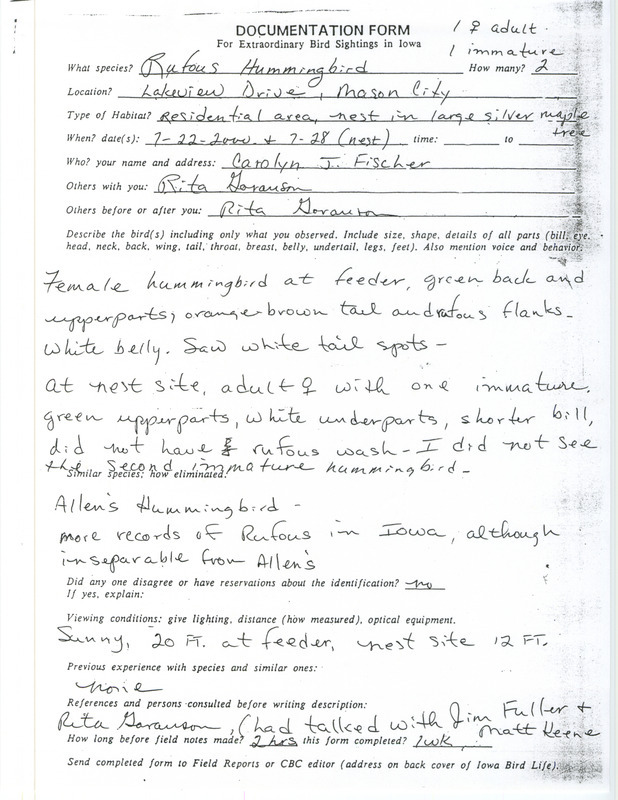 DOCUMENTATION FORM
1 ♀ adult
For Extraordinary Bird Sightings in Iowa
1 immature
What species? Rufous Hummingbird How many? 2
Location? Lakeview Drive, Mason City
Type of Habitat? Residential area, nest in large silver maple tree
When? date(s): 7-22-2000 & 7-28 (nest) time: to
Who? your name and address: Carolyn J. Fischer
Others with you: Rita Goranson
Others before or after you: Rita Goranson
Describe the bird(s) including only what you observed. Include size, shape, details of all parts (bill, eye,
head, neck, back, wing, tail, throat, breast, belly, undertail, legs, feet). Also mention voice and behavior.
Female hummingbird at feeder, green back and
upperparts, orange-brown tail and rufous flanks-
white belly. Saw white tail spots -
at nest site, adult ♀ with one immature.
green upperparts, white underparts, shorter bill,
did not have rufous wash - I did not see
the second immature hummingbird -
Similar species: how eliminated:
Allen's Hummingbird -
more records of Rufous in Iowa, although
inseparable from Allen's
Did any one disagree or have reservations about the identification? no
If yes, explain:
Viewing conditions: give lighting, distance (how measured), optical equipment.
Sunny, 20 FT. at feeder, nest site 12 FT.
Previous experience with species and similar ones:
none
References and persons consulted before writing description:
Rita Goranson, (had talked with Jim Fuller & Matt Kenne
How long before field notes made? 2 hrs this form completed? 1wk.
Send completed form to Field Reports or CBC editor (address on back cover of Iowa Bird Life).